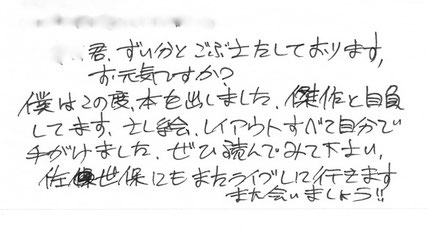 君、ずい分とごぶさたしております。
お元気ですか?
僕はこの度、本を出しました。傑作と自負
してます。さし絵、レイアウトすべて自分で
手がけました。ぜひ読んでみて下さい。
佐世保にもまたライブしに行きます
また会いましょう!!